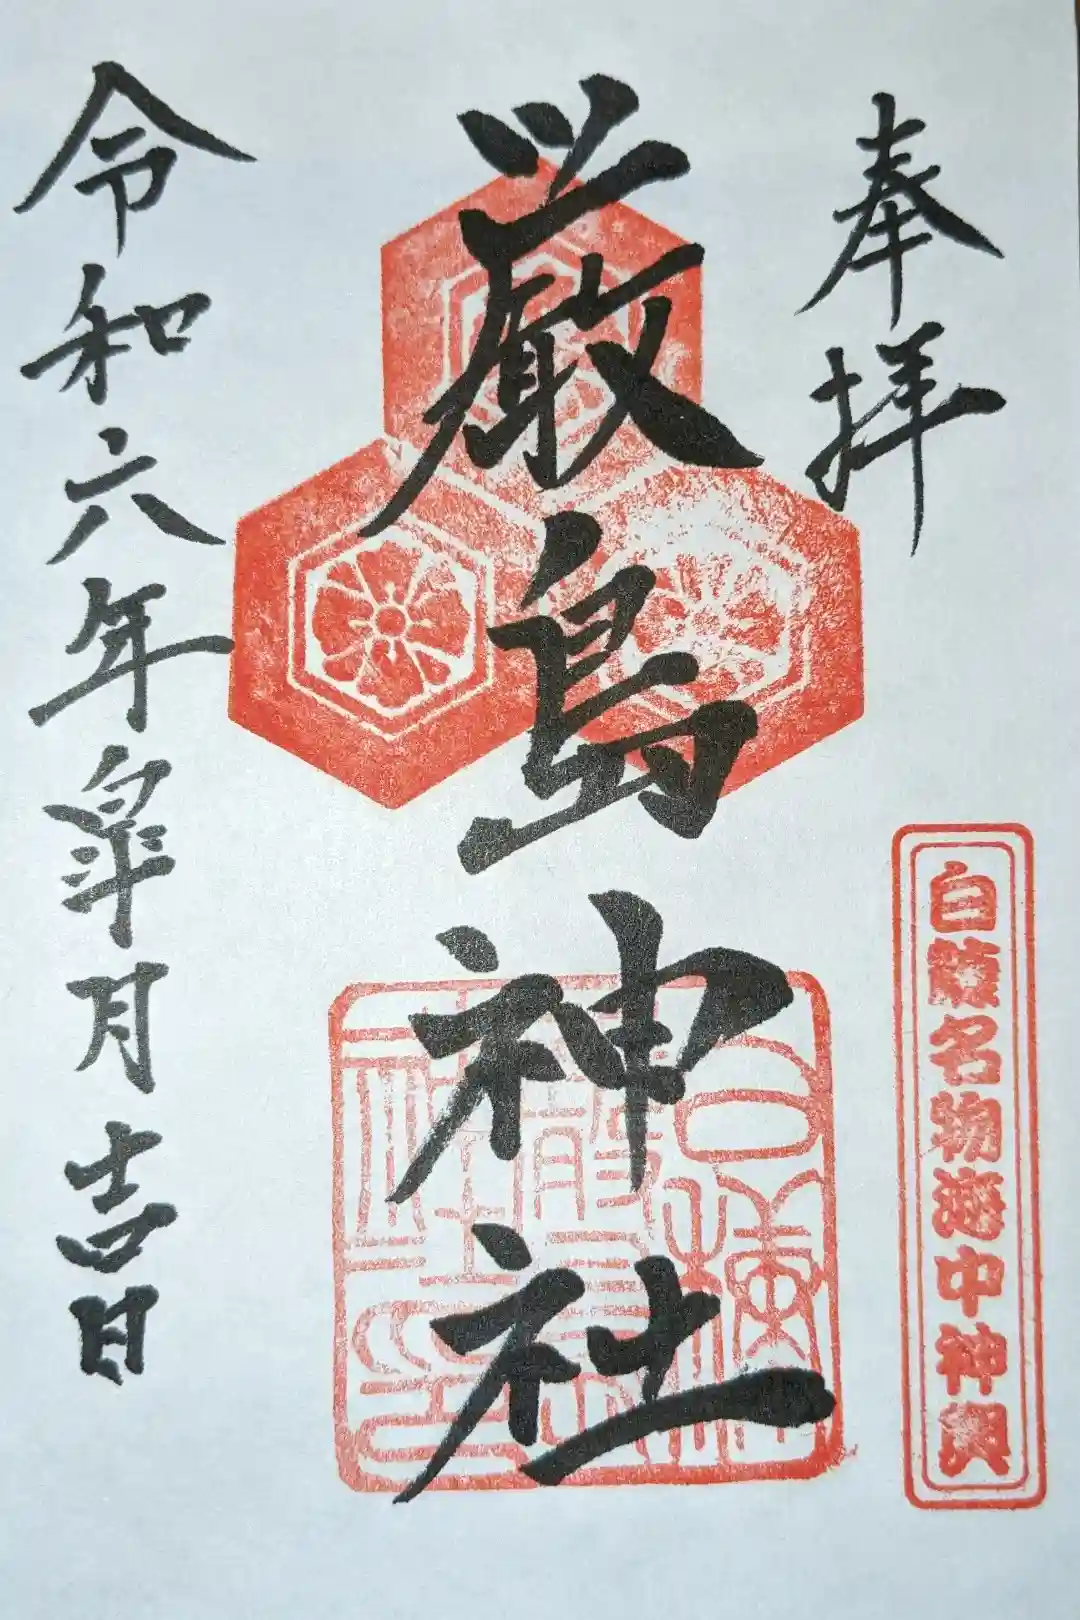 奉拝
白藤名物海中神輿
厳島神社
令和六年皐月吉日